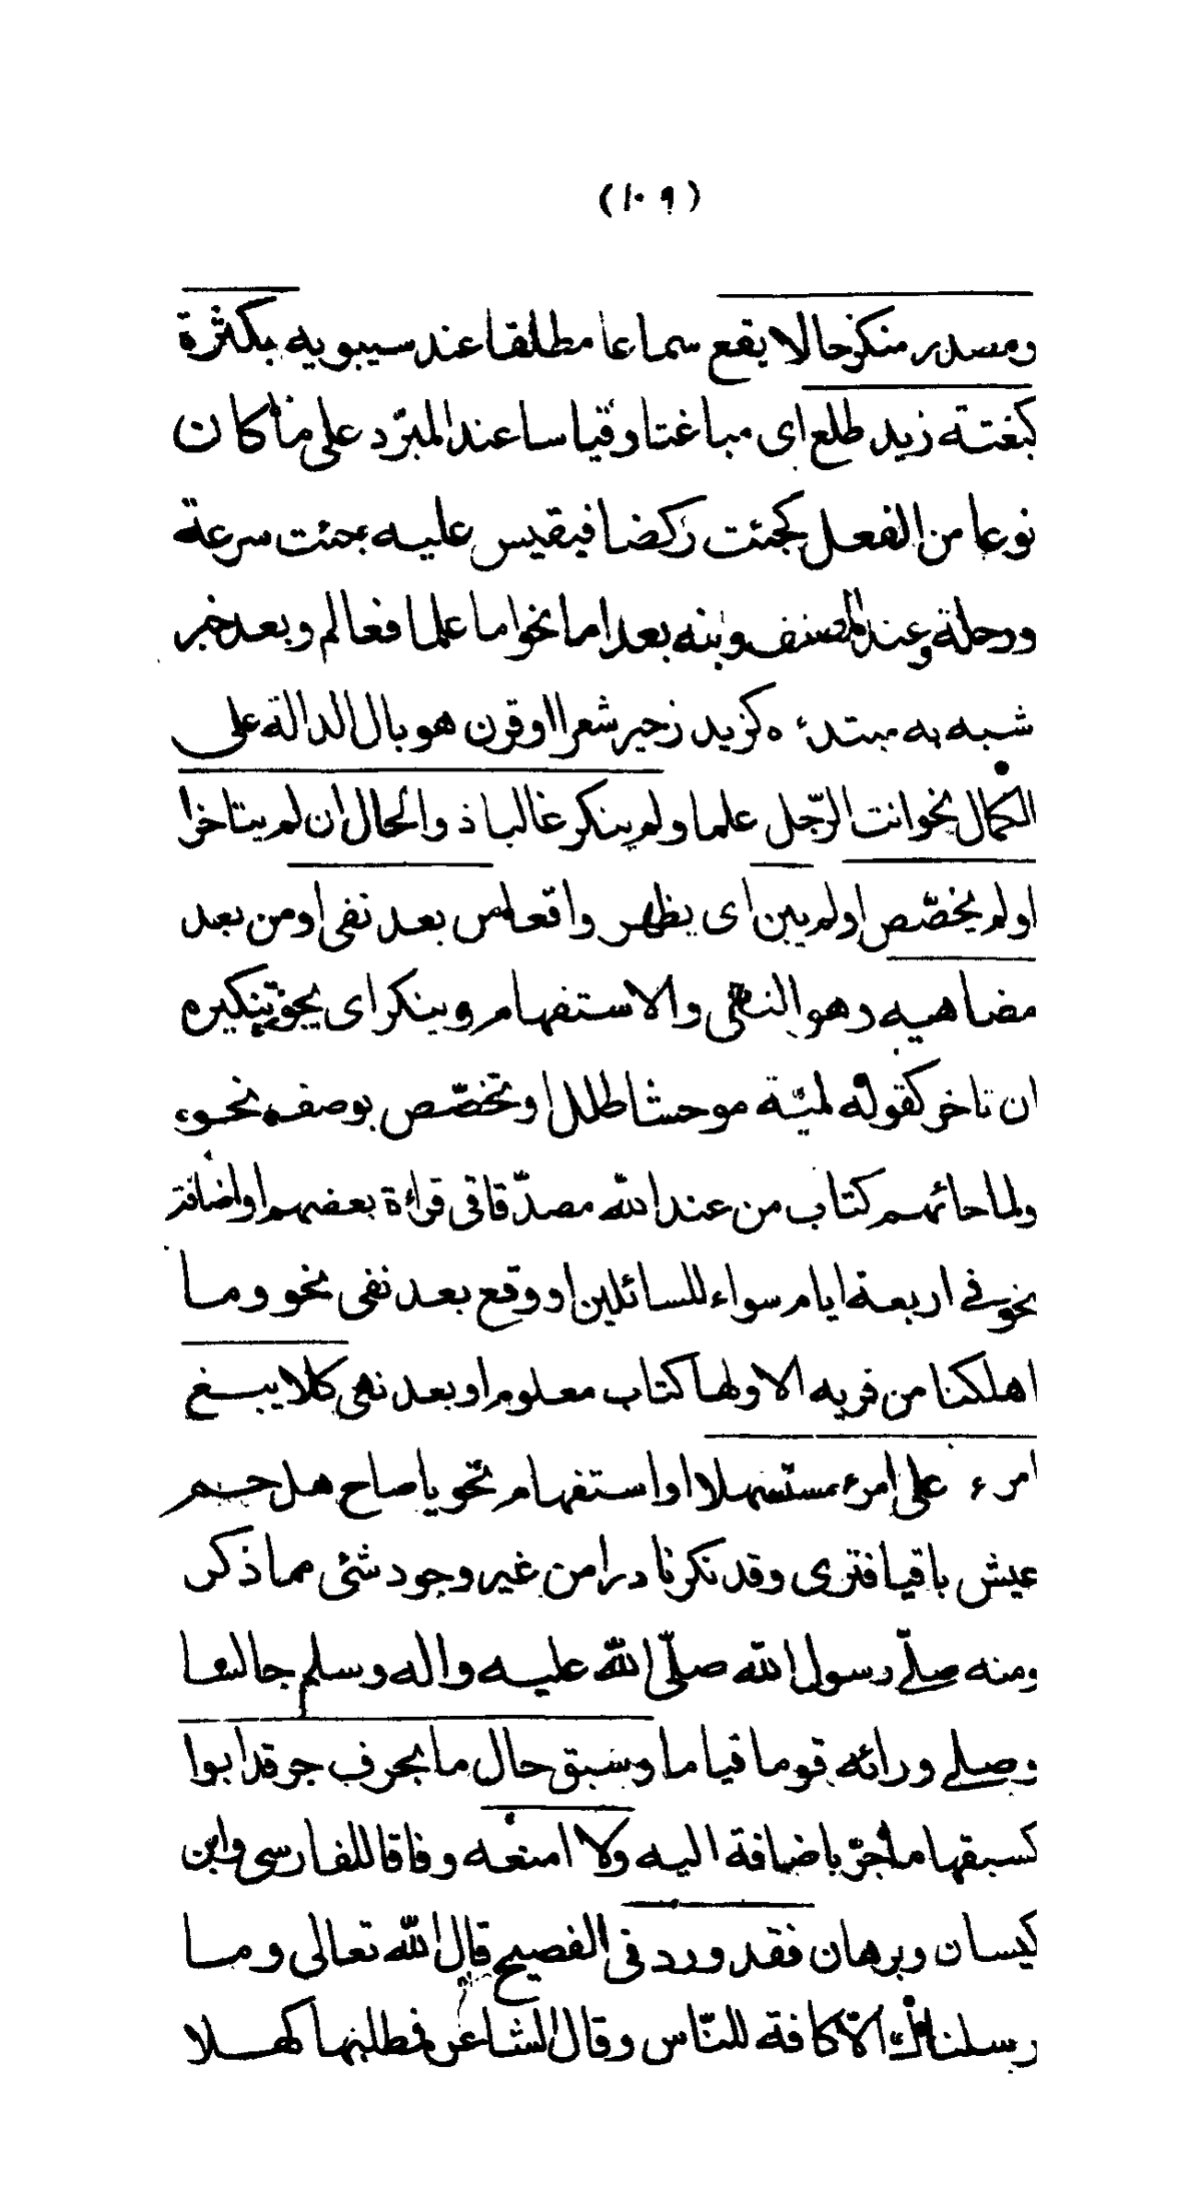 (١٠٩)
ومصدر منكر حالا يقع سماعا مطلقا عند سيبويه بكثرة
كبغتة زيد طلع اى مباغتا وقياسا عند المبرّد على ما كان
نوعا من الفعل كجئت ركضا فيقيس عليه بجئت سرعة
ورحلة وعند المصنف وبنه بعد اما نحو اما علما فعالم وبعد خبر
شبه به مبتدء ه كزيد زهير شعرا او قرن هو بال الدالة على
الكمال نحو انت الرّجل علما ولم ينكر غالبا ذ والحال ان لم يتاخرا
او لم يخصّص او لم يبن اى يظهر واقعا من بعد نفى او من بعد
مضاهيه وهو النهى والاستفهام وينكر اى يجوز تنكيره
ان تاخر كقوله لميّة موحشا طلل او تخصّص بوصف نحو
ولما جائهم كتاب من عند الله مصدّقا فى قراءة بعضهم او اضافة
نحو فى اربعة ايام سواء للسائلين او وقع بعد نفى نحو وما
اهلكنا من قريه الا ولها كتاب معلوم او بعد نهى كلا يبغ
امرء على امرء مستسهلا او استفهام نحو يا صاح هل حم
عيش باقيا فترى وقد نكر نادرا من غير وجود شئى مما ذكر
ومنه صلّى رسول الله صلّى الله عليه واله وسلم جالسا
وصلى ورائه قوما قياما وسبق حال ما بحرف جر قد ابوا
كسبقها ما جرّ باضافة اليه ولا امنعه وفاقا للفارسى وابن
كيسان وبرهان فقد ورد فى الفصيح قال الله تعالى وما
رسلناك الّا كافة للنّاس وقال الشاعر فمطلبها كهلا